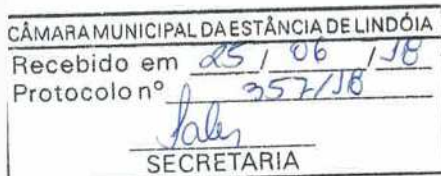 CÂMARA MUNICIPAL DA ESTÂNCIA DE LINDÓIA
Recebido em 25 / 06 / 18
Protocolo nº 357/18
SECRETARIA